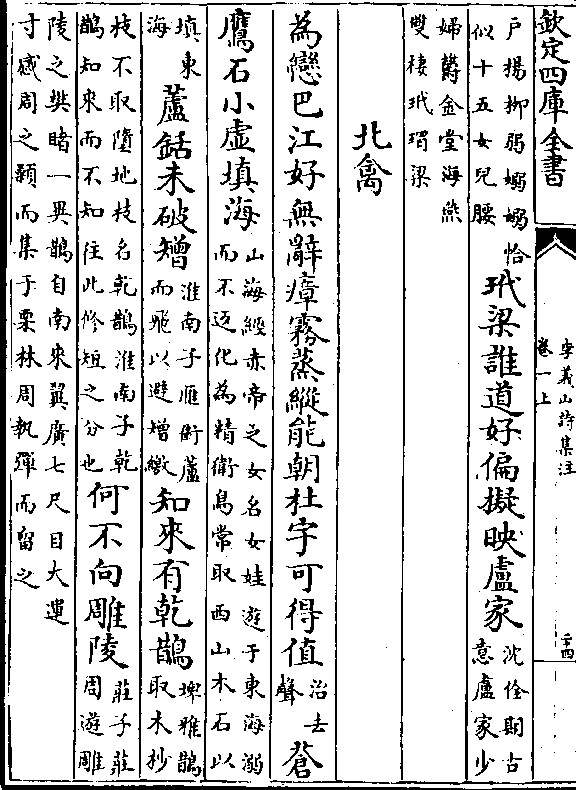 欽定四庫全書
李義山詩集注
卷一上
二十四
戶楊柳弱嫋嫋恰
似十五女兒腰
玳梁誰道好偏擬映盧家
沈佺期古
意盧家少
婦鬱金堂海燕
雙棲玳瑁梁
北禽
為戀巴江好無辭瘴霧蒸縱能朝杜宇可得值
治去
聲
蒼
鷹石小虛填海
山海經赤帝之女名女娃遊于東海溺
而不返化為精衛鳥常取西山木石以
填東
海
蘆銛未破矰
淮南子雁銜蘆
而飛以避增繳
知來有乾鵲
埤雅鵲
取木杪
枝不取墮地枝名乾鵲淮南子乾
鵲知來而不知往此修短之分也
何不向雕陵
莊子莊
周遊雕
陵之樊睹一異鵲自南來翼廣七尺目大運
寸感周之顙而集于栗林周執彈而留之